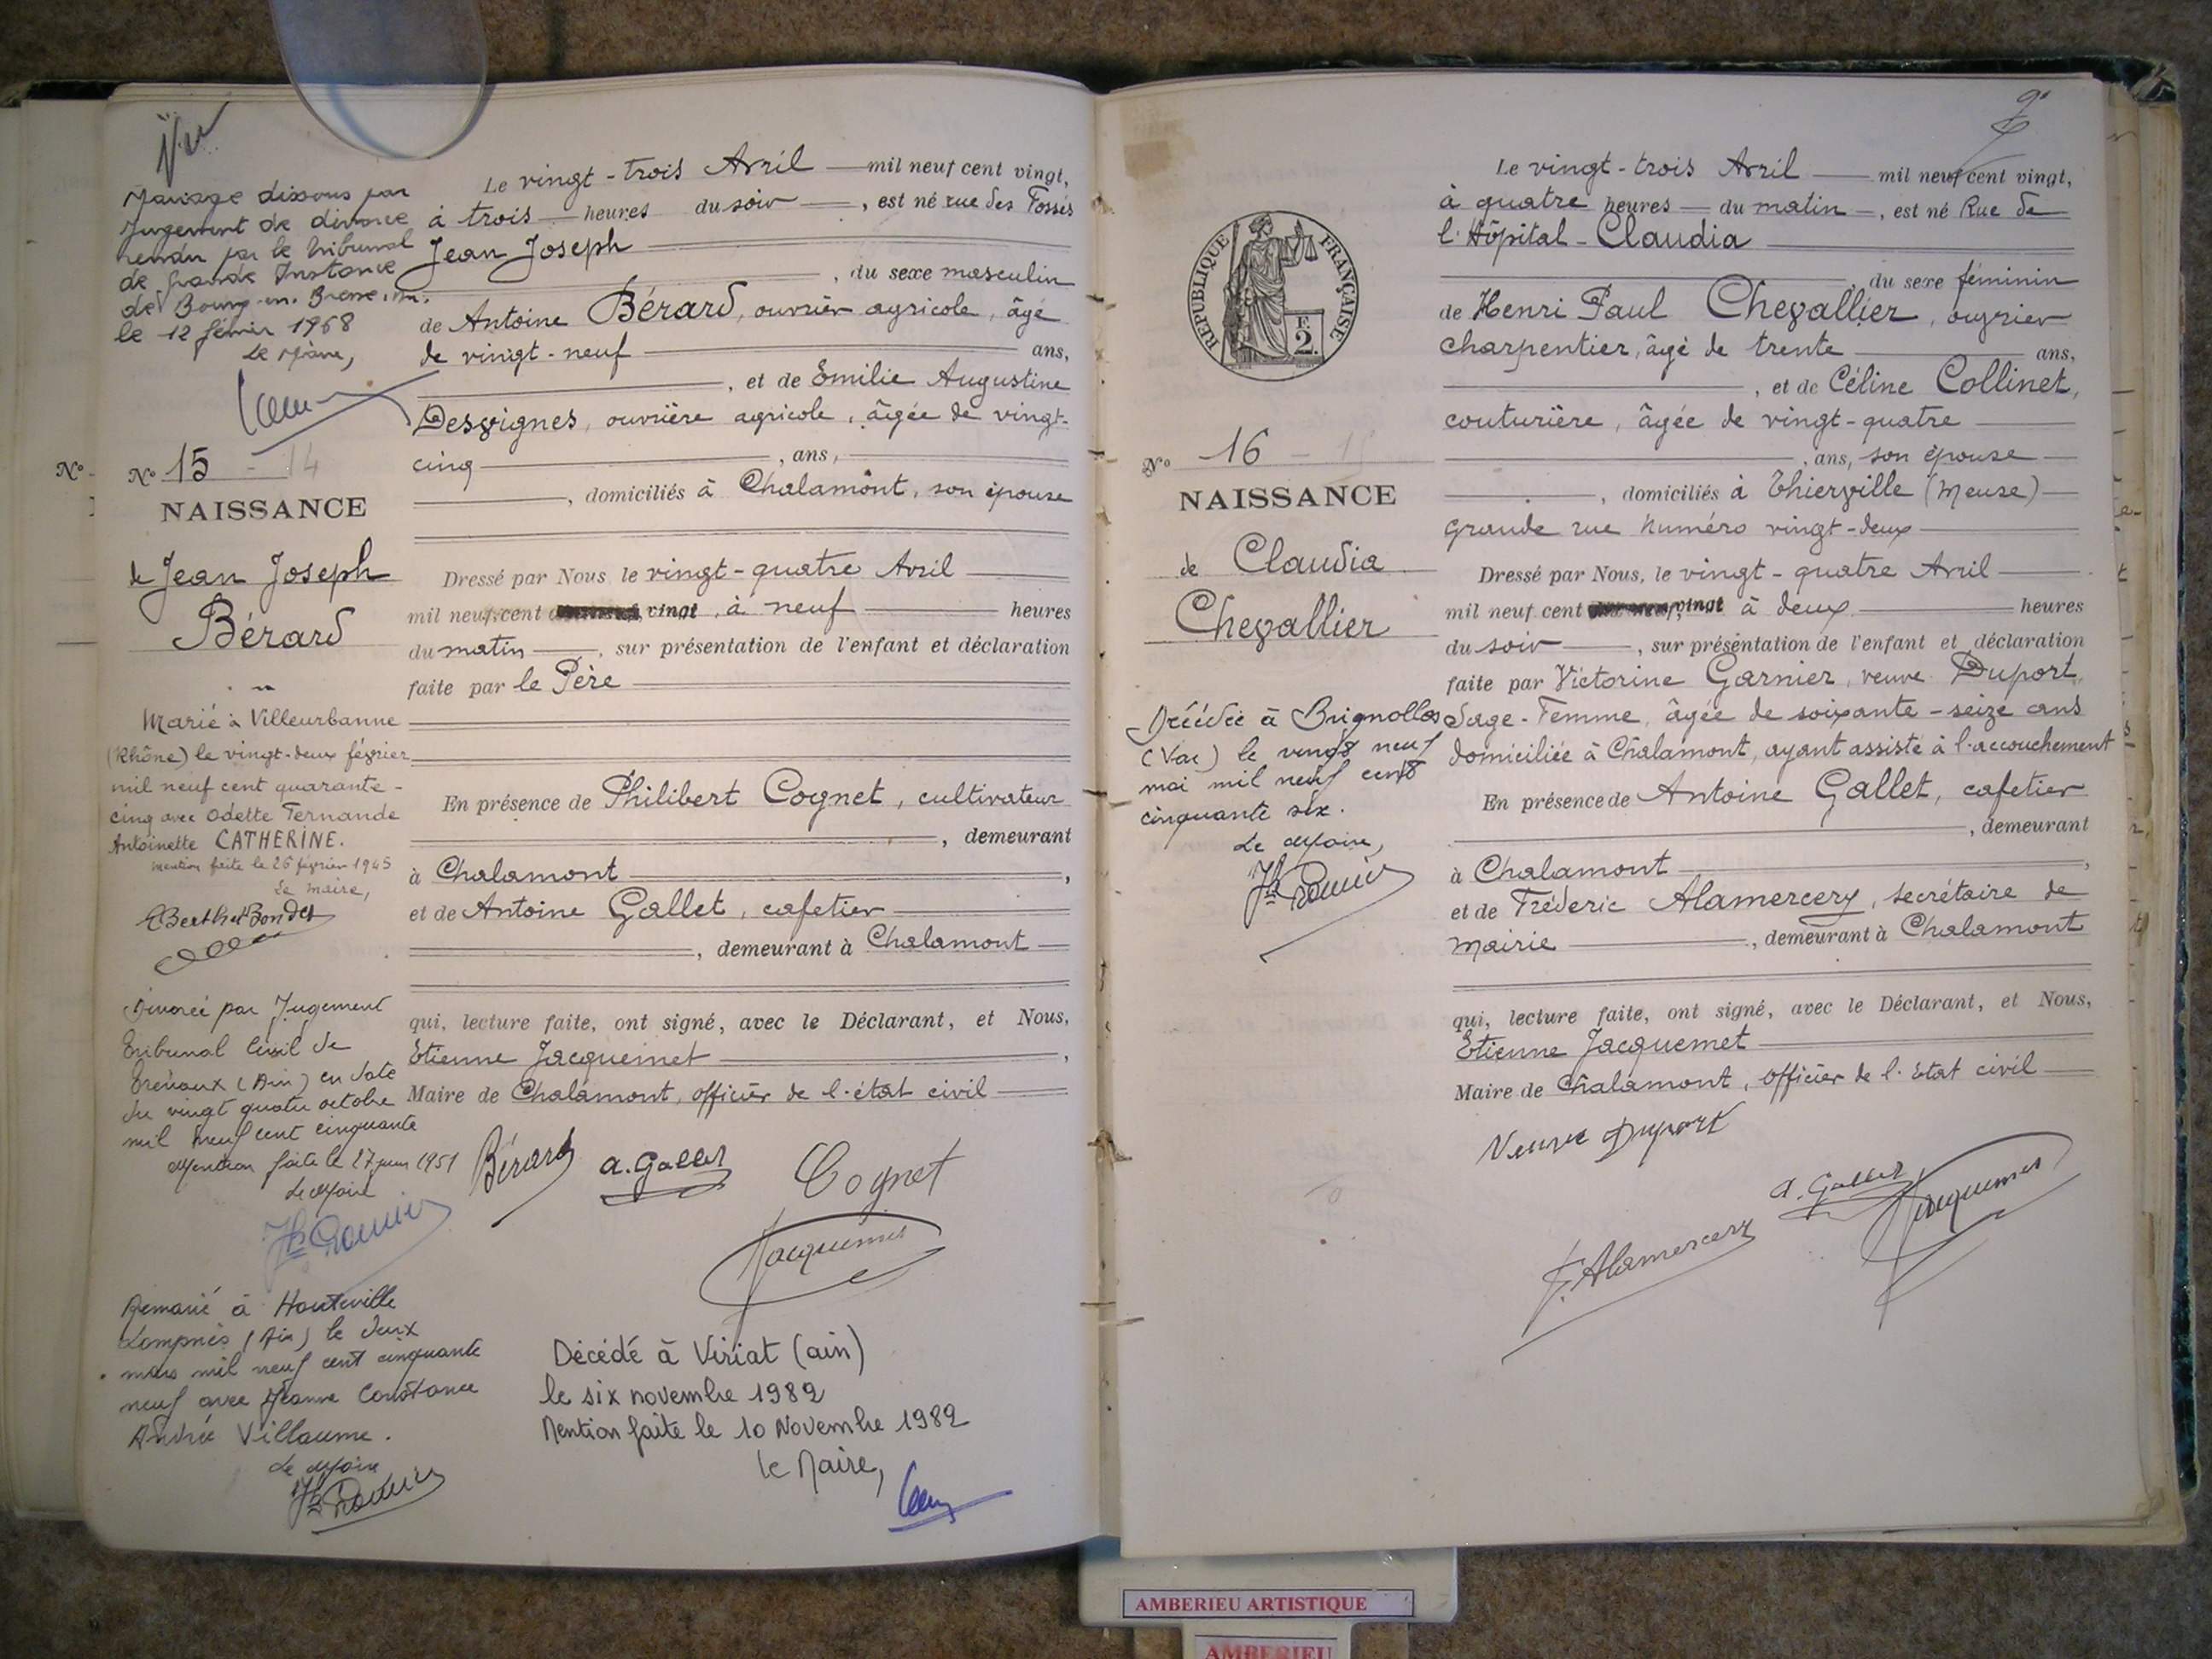 Vu
Mariage dissous par
Jugement de divorce
rendu par le tribunal
de Grande Instance
de Bourg-en-Bresse
le 12 février 1968
Le Maire,
N° 15 - 14
NAISSANCE
de Jean Joseph
Bérard
Marié à Villeurbanne
(Rhône) le vingt-deux février
mil neuf cent quarante-
cinq avec Odette Fernande
Antoinette CATHERINE.
Mention faite le 26 février 1945
Le Maire,
Divorcé par Jugement
Tribunal Civil de
Trévoux (Ain) en date
du vingt quatre octobre
mil neuf cent cinquante
Mention faite le 27 juin 1951
Le Maire
Remarié à Hauteville
Lompnès (Ain) le deux
mars mil neuf cent cinquante
neuf avec Jeanne Constance
Andrée Villaume.
Le Maire
Le vingt-trois Avril mil neuf cent vingt,
à trois heures du soir, est né rue des Fossés
Jean Joseph
, du sexe masculin
de Antoine Bérard, ouvrier agricole, âgé
de vingt-neuf ans,
, et de Emilie Augustine
Desvignes, ouvrière agricole, âgée de vingt-
cinq , ans,
, domiciliés à Chalamont, son épouse
Dressé par Nous, le vingt-quatre Avril
mil neuf cent vingt, à neuf heures
du matin, sur présentation de l'enfant et déclaration
faite par le Père
En présence de Philibert Cognet, cultivateur
, demeurant
à Chalamont ,
et de Antoine Gallet, cafetier
, demeurant à Chalamont
qui, lecture faite, ont signé, avec le Déclarant, et Nous,
Etienne Jacquemet ,
Maire de Chalamont, officier de l'état civil
Bérard a. Gallet Cognet
Jacquemet
Décédé à Viriat (ain)
le six novembre 1982
Mention faite le 10 Novembre 1982
le Maire,
N° 16
NAISSANCE
de Claudia
Chevallier
Décédée à Brignolles
(Var) le vingt neuf
mai mil neuf cent
cinquante six.
Le Maire,
REPUBLIQUE FRANÇAISE
F.
2.
Le vingt-trois Avril mil neuf cent vingt,
à quatre heures du matin, est né Rue de
l'Hôpital - Claudia
, du sexe féminin
de Henri Paul Chevallier, ouvrier
charpentier, âgé de trente ans,
, et de Céline Collinet,
couturière, âgée de vingt-quatre
, ans, son épouse
, domiciliés à Thierville (Meuse)
grande rue numéro vingt-deux
Dressé par Nous, le vingt-quatre Avril
mil neuf cent vingt à deux heures
du soir, sur présentation de l'enfant et déclaration
faite par Victorine Garnier, veuve Duport,
Sage-Femme, âgée de soixante-seize ans
domiciliée à Chalamont, ayant assisté à l'accouchement
En présence de Antoine Gallet, cafetier
, demeurant
à Chalamont ,
et de Fréderic Alamercery, secrétaire de
mairie , demeurant à Chalamont
qui, lecture faite, ont signé, avec le Déclarant, et Nous,
Etienne Jacquemet
Maire de Chalamont, officier de l'Etat civil
Veuve Duport
a. Gallet Jacquemet
F. Alamercery
AMBERIEU ARTISTIQUE
AMBERIEU